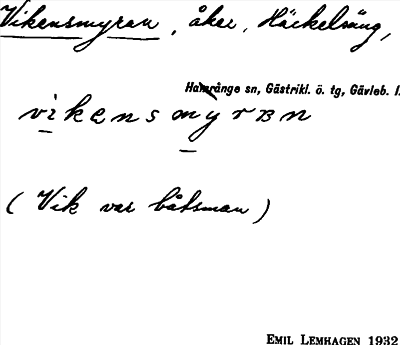 Vikensmyran, åker, Häckelsäng,
Hamrånge sn, Gästrikl. ö. tg, Gävleb. l.
vikensmyrʙn
(Vik var båtsman)
EMIL LEMHAGEN 1932